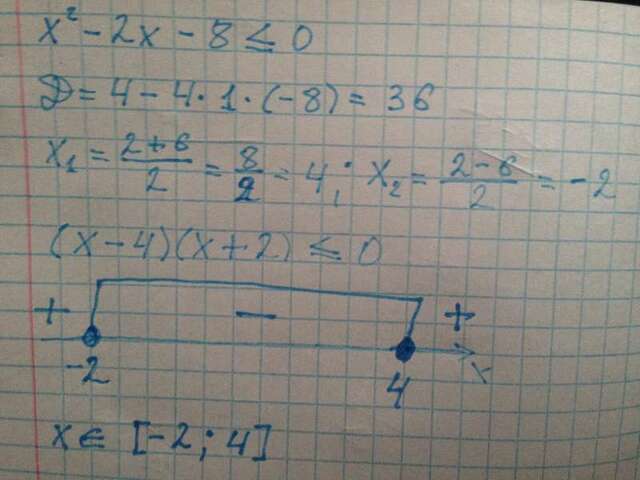 x² - 2x - 8 ≤ 0
D = 4 - 4 · 1 · (-8) = 36
x₁ = (2+6)/2 = 8/2 = 4; x₂ = (2-6)/2 = -2
(x - 4)(x + 2) ≤ 0
+ - +
-2 4 x
x ∈ [-2; 4]